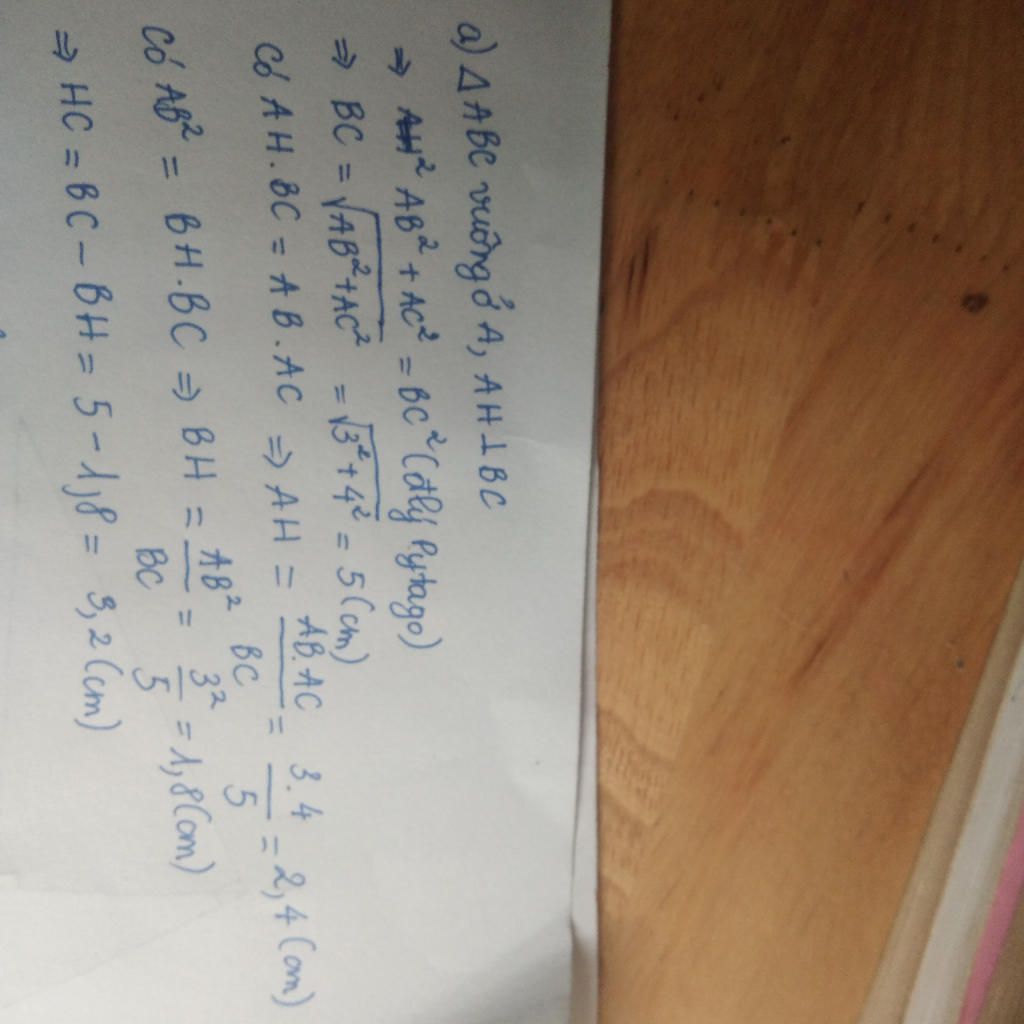 a) Δ ABC vuông ở A, AH ⊥ BC
⇒ AB² + AC² = BC² (đlý Pytago)
⇒ BC = √(AB²+AC²) = √(3²+4²) = 5(cm)
Có AH.BC = AB.AC ⇒ AH = AB.AC/BC = 3.4/5 = 2,4(cm)
Có AB² = BH.BC ⇒ BH = AB²/BC = 3²/5 = 1,8(cm)
⇒ HC = BC – BH = 5 – 1,8 = 3,2(cm)